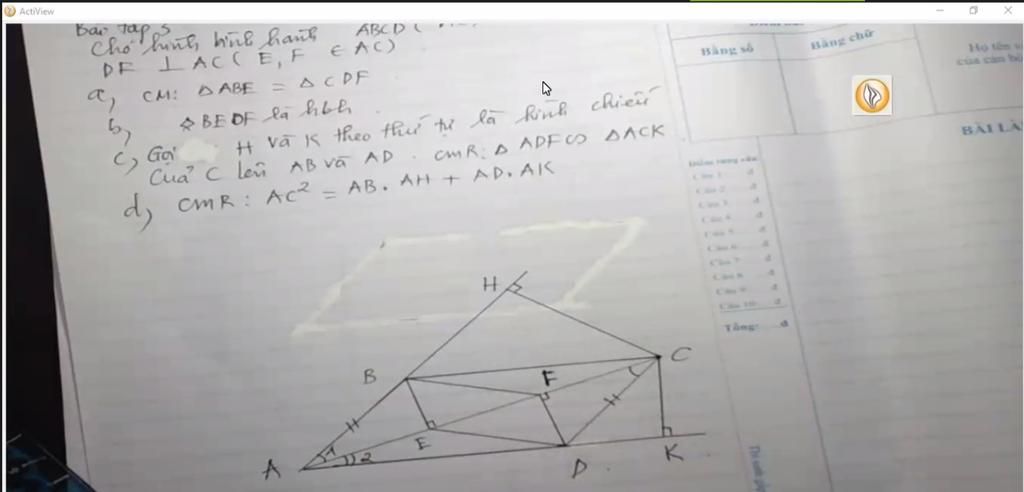 ActiView
Bài tập 3
Cho hình bình hành ABCD (
DF ⊥ AC ( E, F ∈ AC)
a, CM: △ABE = △CDF
b, BEDF là hbh
c, Gọi H và K theo thứ tự là hình chiếu
của C lên AB và AD. CMR: △ADF∽ △ACK
d, CMR: AC² = AB. AH + AD. AK
H
B
C
F
A
1
2
E
D
K
Bằng số
Bằng chữ
Họ tên
của cán
BÀI LÀ
Điểm từng câu
Câu 1 đ
Câu 2 đ
Câu 3 đ
Câu 4 đ
Câu 5 đ
Câu 6 đ
Câu 7 đ
Câu 8 đ
Câu 9 đ
Câu 10 đ
Tổng: đ